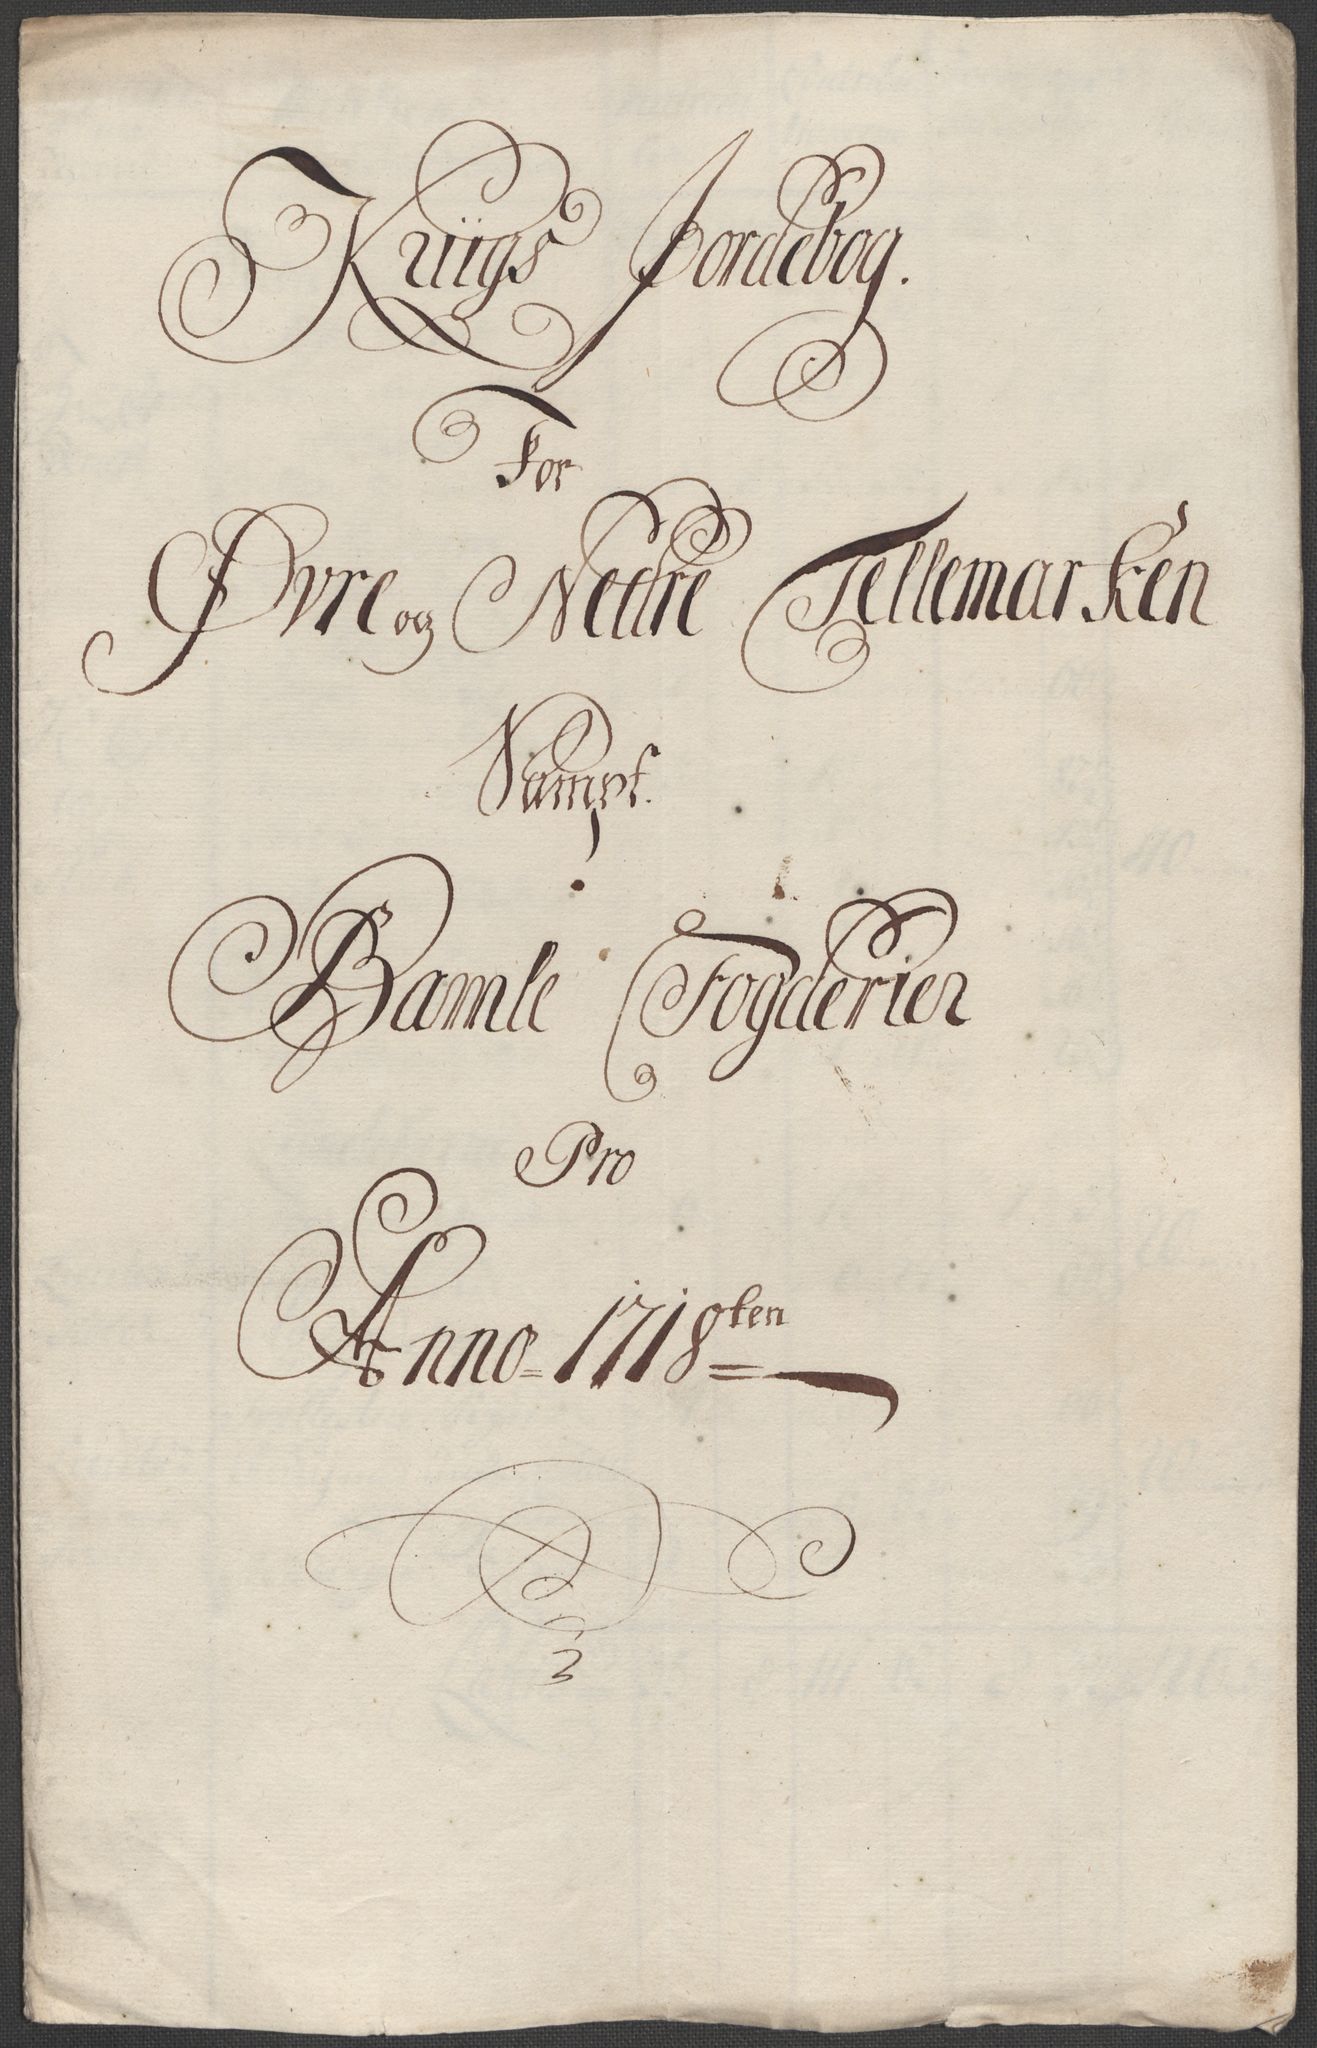 Kriigs Jordebog.
For
Øvre og Nedre Tellemarken
Sampt.
Bamle Fogderier
Pro
Anno 1718ten